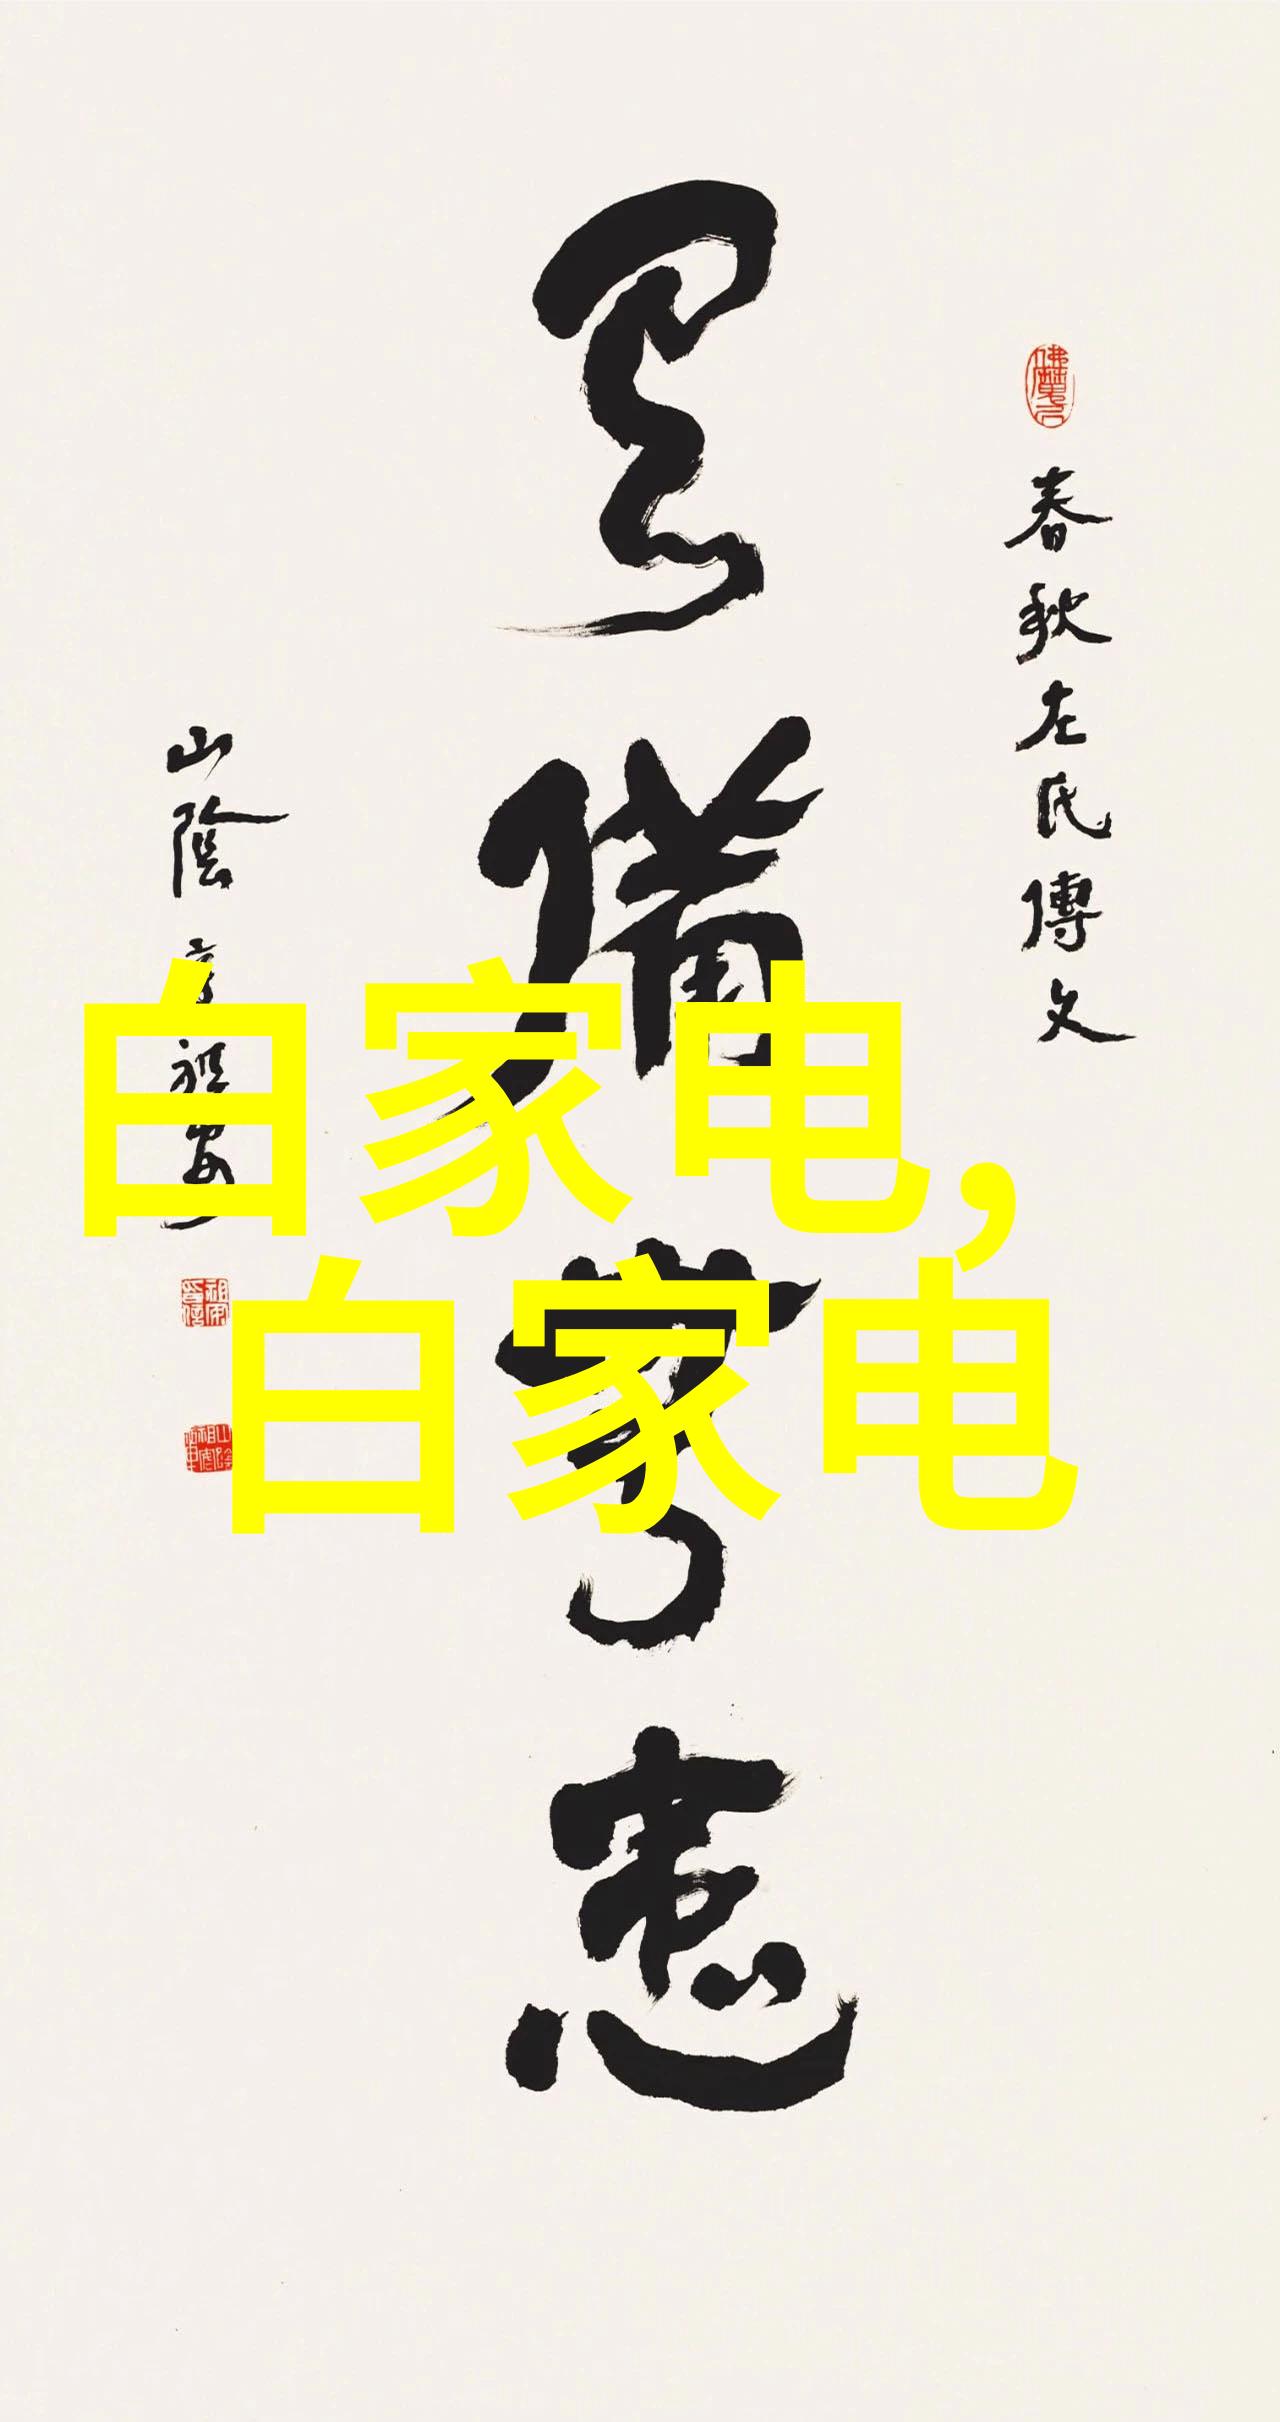 春秋左氏傳文
備患
山陰祖安
白家电，
白家电